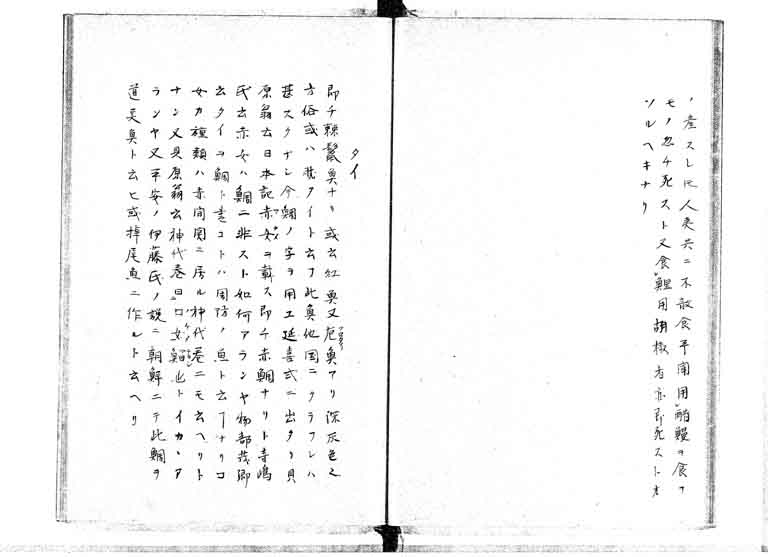 ノ産スレ𪜈人畏其ニ不敢食平常用
モノ忽チ死スト又食鯉用胡椒者亦即死スト云
ソルヘキナリ
タイ
即チ棘鬣魚ナリ或云紅魚又 魚アリ深灰色之
方俗或ハ タイト云フ此魚他国ニクラフレハ
甚スクナシ今鯛ノ字ヲ用エ延喜式ニ出タリ貝
原翁云日本記赤女ヲ載ス即チ赤鯛ナリト寺嶋
氏云赤女ハ鯛ニ非スト如何アランヤ物部茂卿
云タイヲ鯛ト書コトハ周防ノ魚ト云フナリコ
女カ種類ハ赤間関ニ居ル神代巻ニモ云ヘリト
ナン又貝原翁云神代巻曰口女鯔也トイカヽア
ランヤ又平安ノ伊藤氏ノ説ニ朝鮮ニテ此鯛ヲ
道美魚ト云ヒ或掉尾魚ニ作ルト云ヘリ